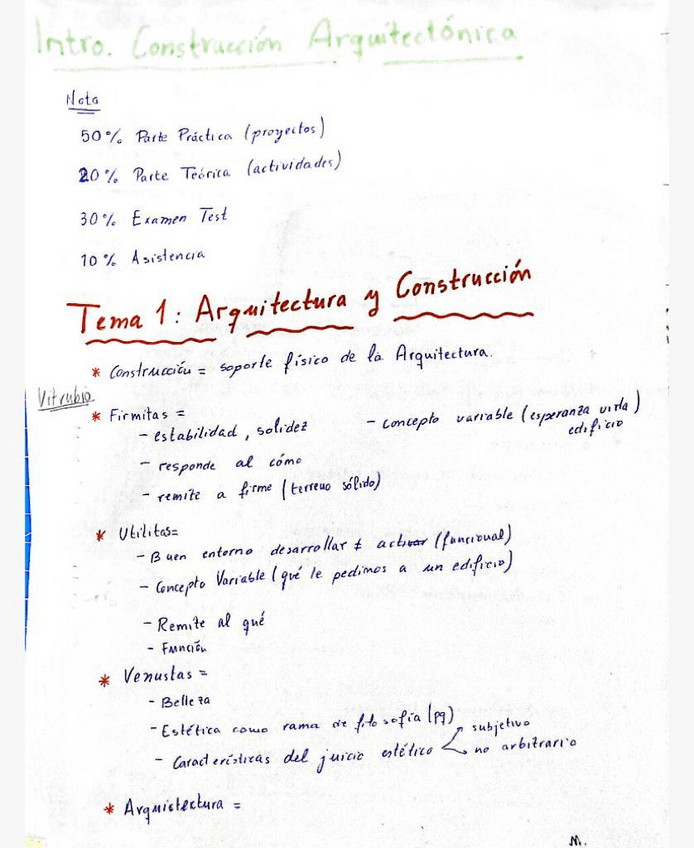 Intro. Construcción Arquitectónica
Nota
50% Parte Práctica (proyectos)
20% Parte Teórica (actividades)
30% Examen Test
10% Asistencia
Tema 1: Arquitectura y Construcción
* Construcción = soporte físico de la Arquitectura.
Vitrubio
* Firmitas =
- estabilidad, solidez
- concepto variable (esperanza vida edificio)
- responde al cómo
- remite a firme (terreno sólido)
* Utilitas=
- Buen entorno desarrollar (funcional)
- Concepto Variable (qué le pedimos a un edificio)
- Remite al qué
- Función
* Venustas =
- Belleza
- Estética como rama de filosofía
- Características del juicio estético
subjetivo
no arbitrario
* Arquistectura =
M.